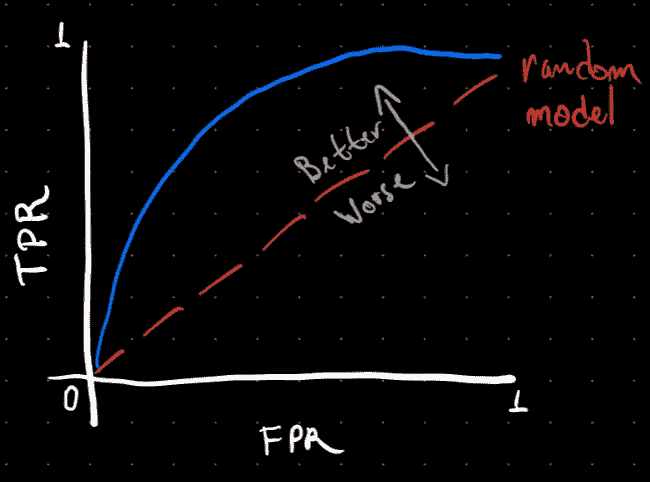 1
random
model
Better
Worse
TPR
0
1
FPR